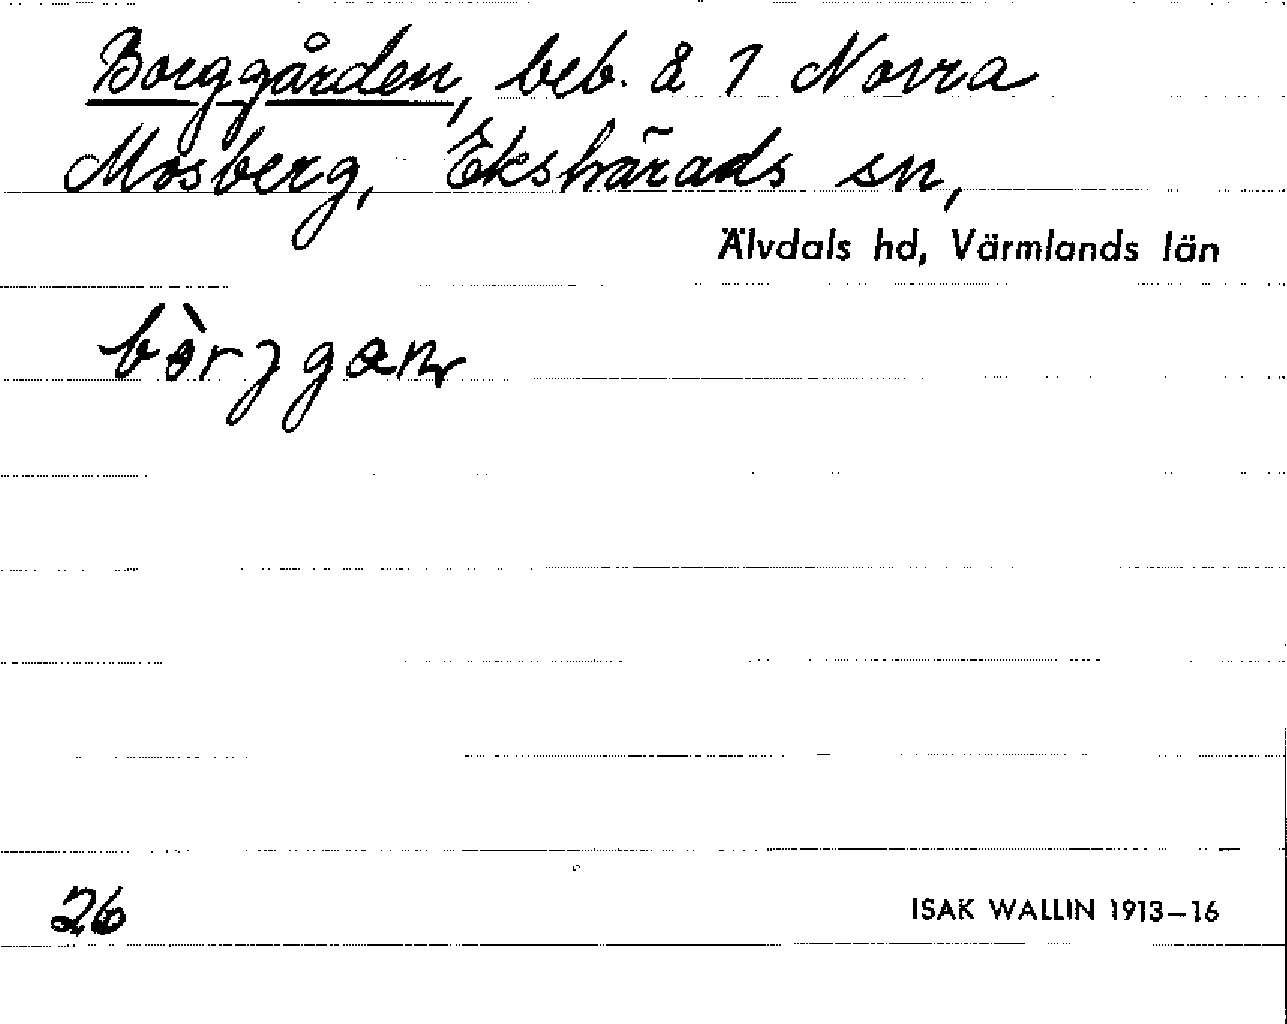 Borggården, beb. å 1 Norra
Mosberg, Ekshärads sn,
Älvdals hd, Värmlands län
26
ISAK WALLIN 1913–16